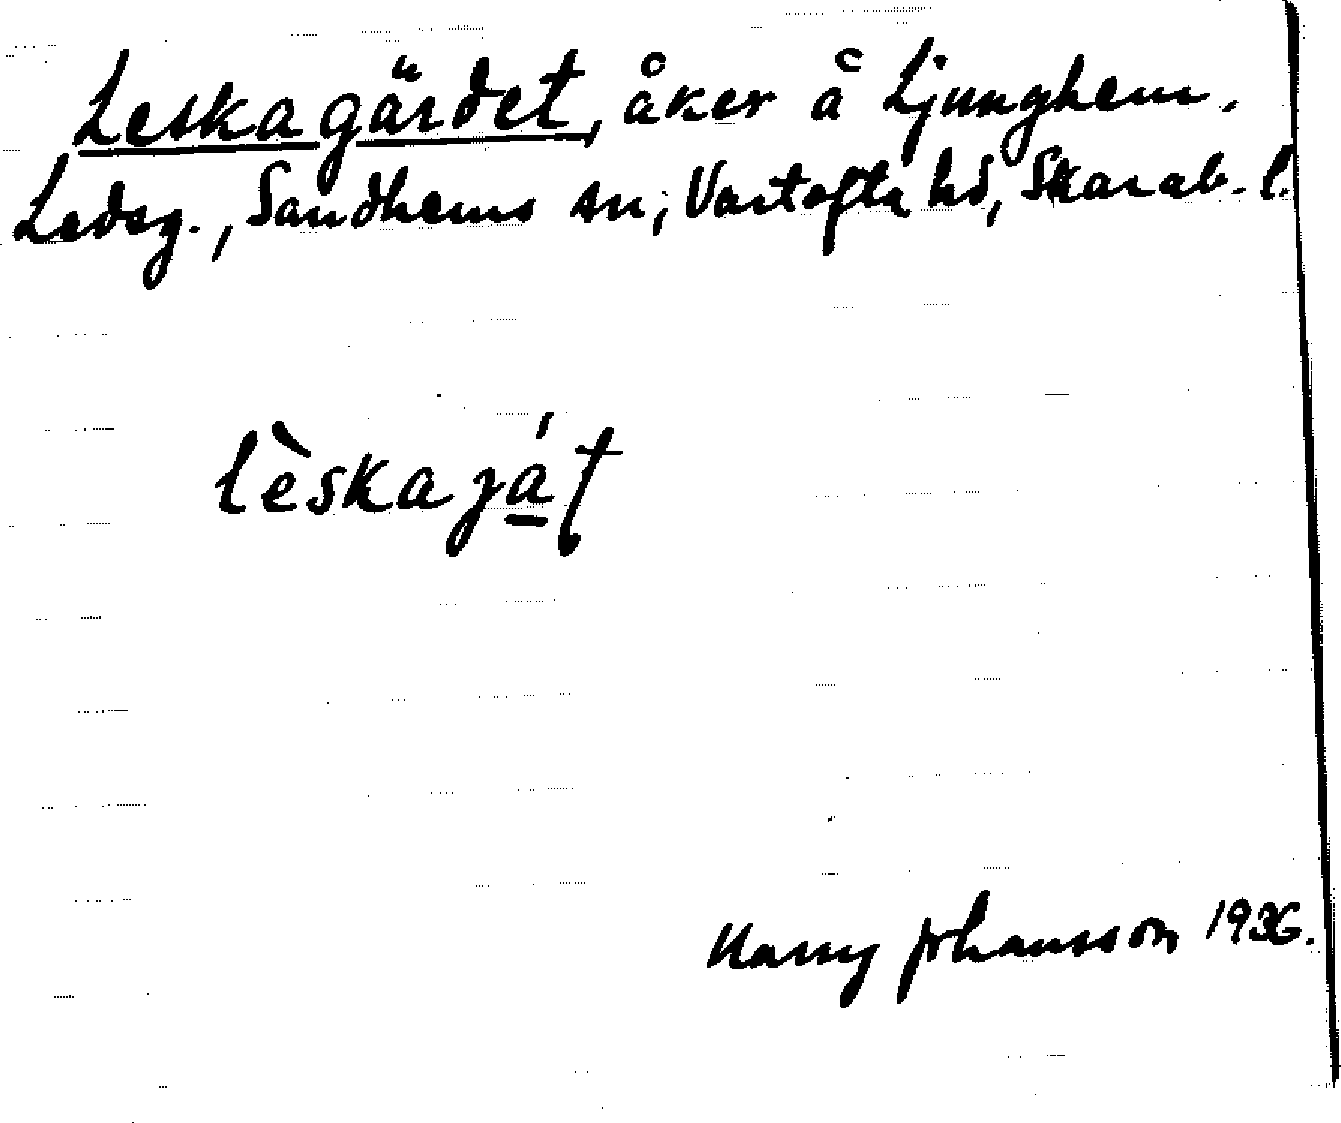 Leskagärdet, åker å Ljunghem.
Ledsg., Sandhems sn, Vartofta hd, Skarab. l.
lèskajá̱t
Harry Johansson 1936.